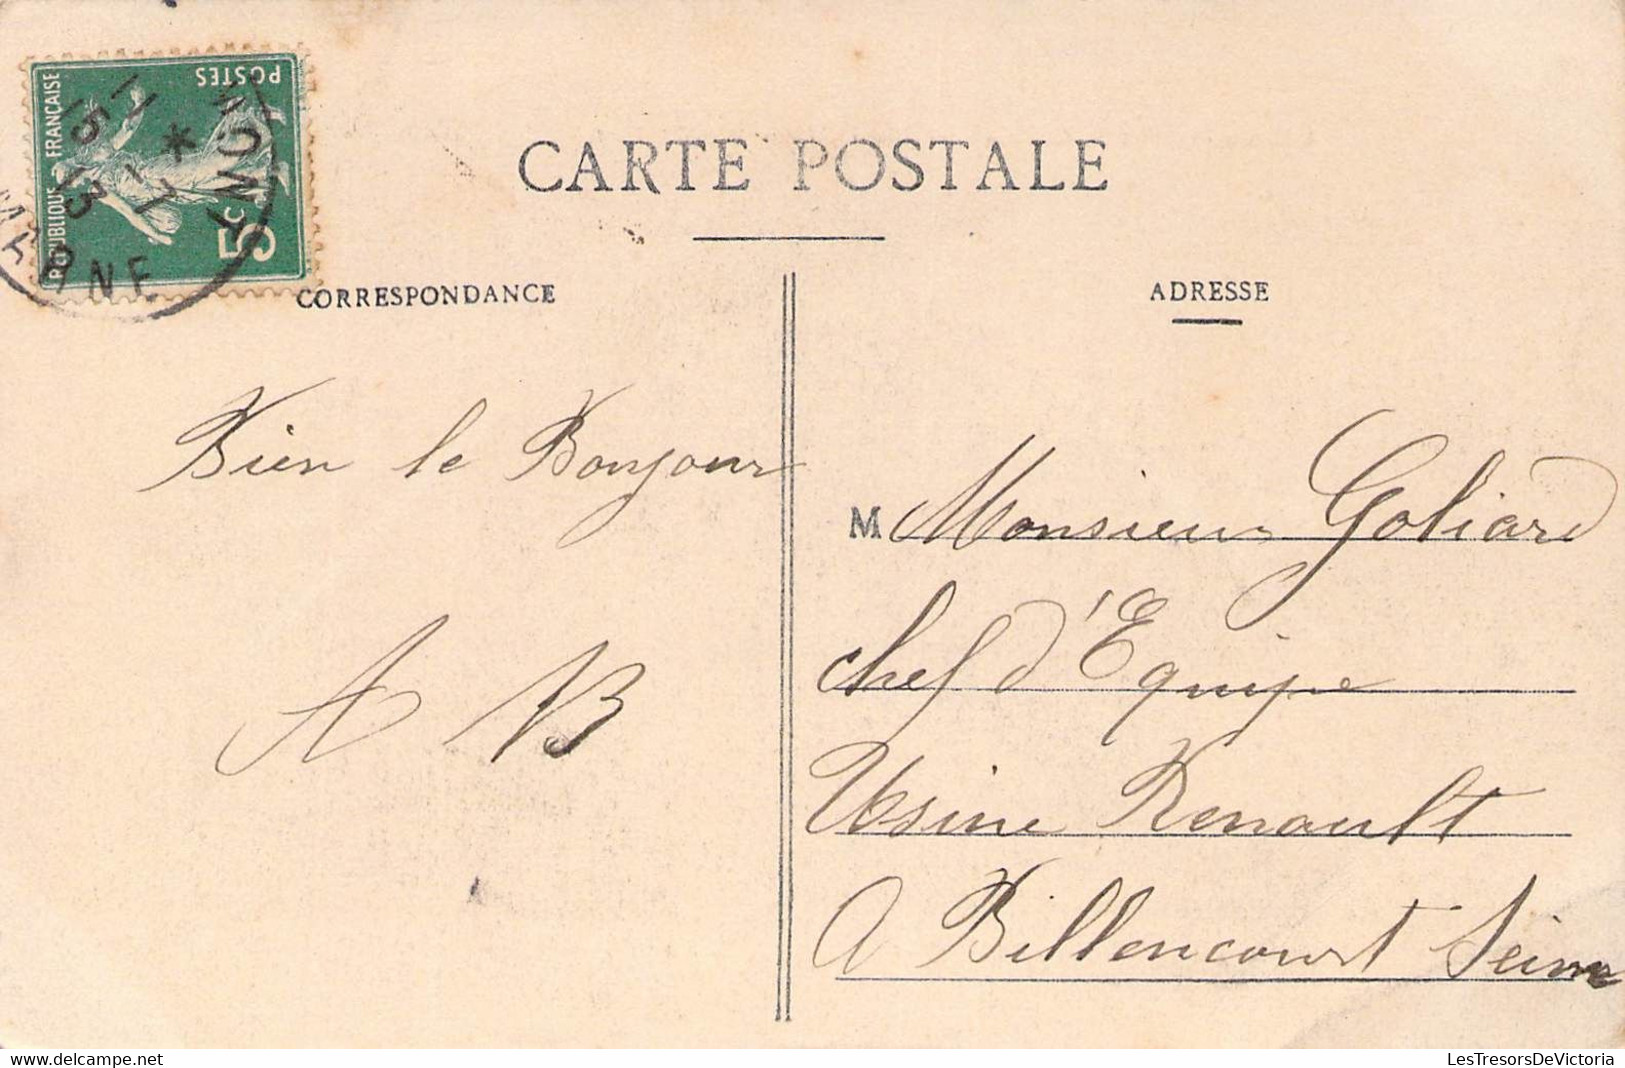 RÉPUBLIQUE FRANÇAISE
POSTES
5c
11 *
15 -7
13
MARNE
CARTE POSTALE
CORRESPONDANCE
ADRESSE
Bien le Bonjour
A B
M Monsieur Goliard
chef d'Equipe
Usine Renault
A Billencourt Seine
LesTresorsDeVictoria
delcampe.net